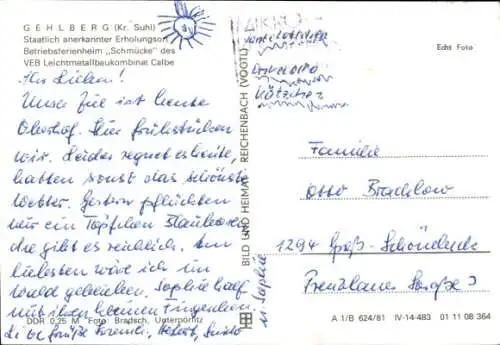 GEHLBERG (Kr. Suhl)
Staatlich anerkannter Erholungsort
Betriebsferienheim „Schmücke" des
VEB Leichtmetallbaukombinat Calbe
Ihr Lieben!
Unser Ziel ist heute
Oberhof. Nun frühstücken
wir. Leider regnet es heute,
hatten sonst das schönste
Wetter. Gestern pflückten
wir ein Töpfchen Blaubeeren
die gibt es reichlich. Am
liebsten wäre ich im
Wald geblieben. Sophie half
mit ihren kleinen Fingerlein.
Liebe Grüße
u. Sophie
DDR 0,25 M Foto: Bradsch, Unterpörlitz
BILD UND HEIMAT REICHENBACH (VOGTL)
Echt Foto
Kätzchen
Familie
Otto
1294 Groß-Schönebeck
Prenzlauer Straße
A 1/B 624/81 IV-14-483 01 11 08 364